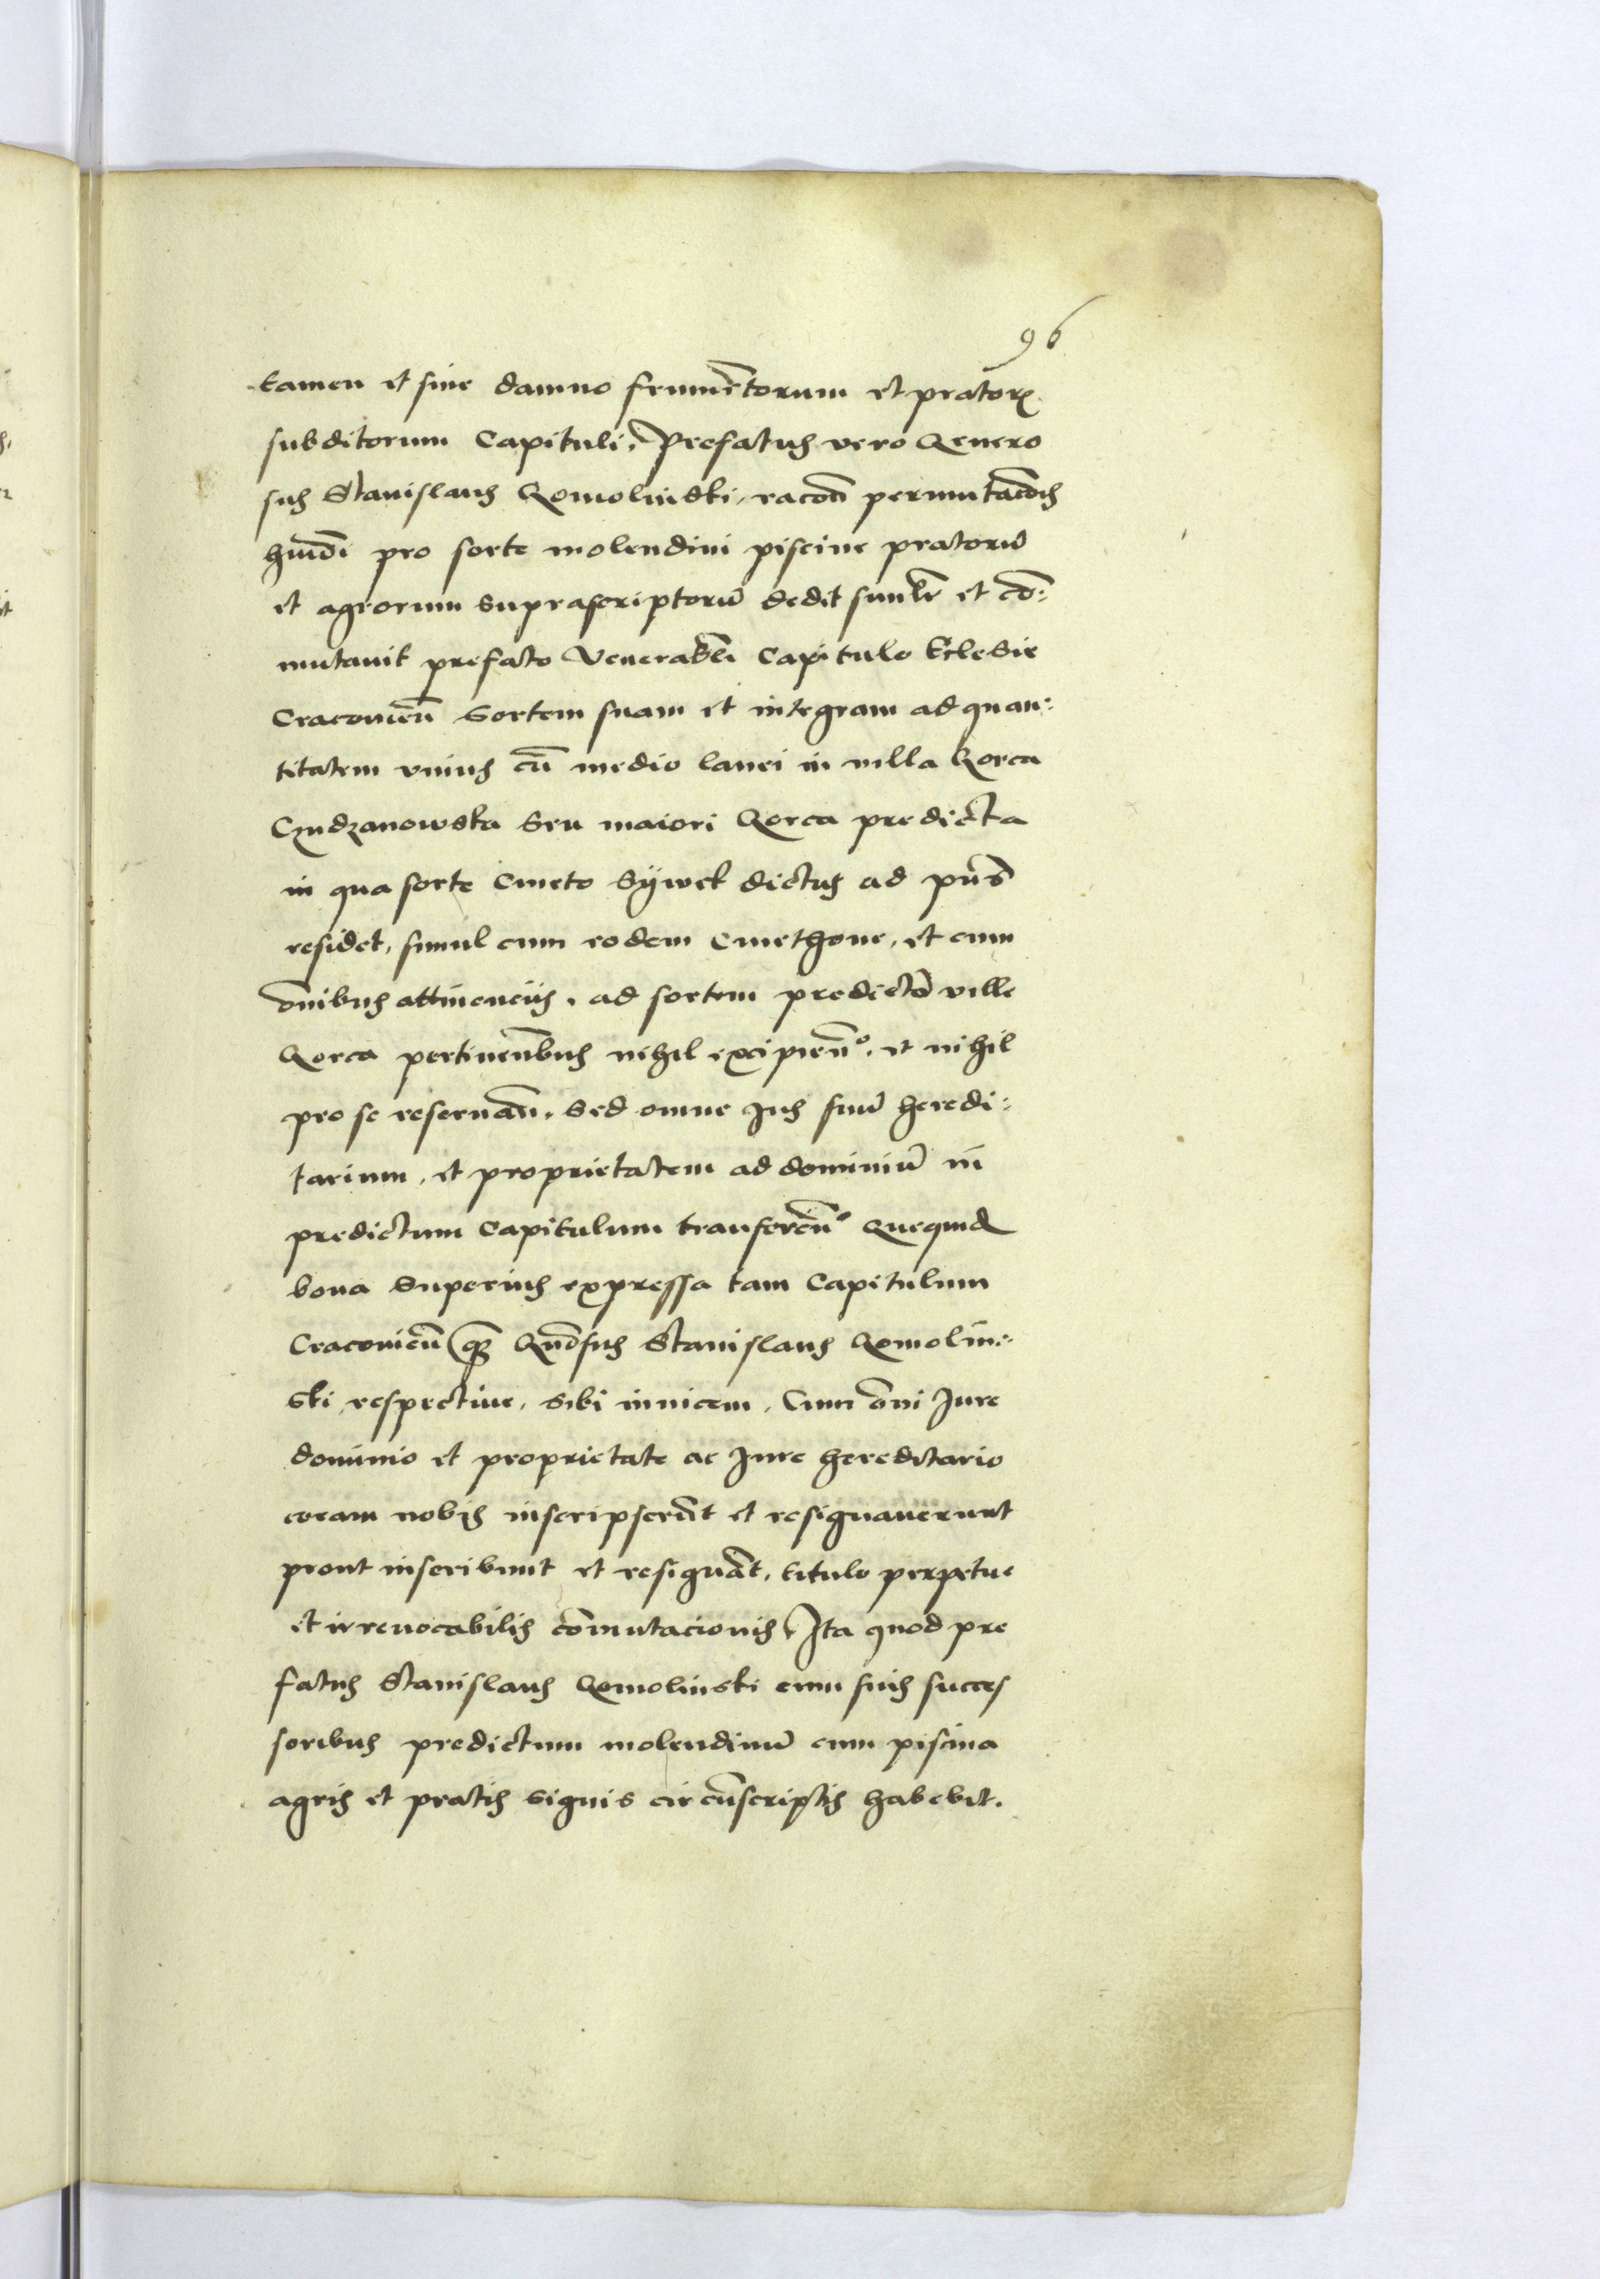 96
tamen et sine damno frumētorum et pratorꝝ
subditorum Capituli. Prefatus vero Genero
sus Stanislaus Gomolinski, racoē permutacōis
huiōi pro sorte molendini piscine pratorū
et agrorum suprascriptorū dedit similr et cō:
mutauit prefato Venerabli Capitulo Ecclesie
Cracouieñ Sortem suam et integram ad quan:
titatem vnius cū medio lanei in villa Gorca
Czudzanowska seu maiori Gorca predicta
in qua sorte Cmeto Sÿwek dictus ad pn̄s
residet, simul cum eodem Cmethone, et cum
om̄ibus attinencijs, ad sortem predictā ville
Gorca pertinen̄bus nihil excipien̄o, et nihil
pro se reseruan̄. Sed omne Jus suū heredi:
tarium, et proprietatem ad dominiū in
predictum Capitulum transferen̄o Quequid
bona superius expressa tam Capitulum
Cracouien̄ qȝ Gn̄osus Stanislaus Gomolin:
ski respectiue, sibi inuicem, Cum om̄i Jure
dominio et proprietate ac Jure hereditario
coram nobis inscripserūt et resignauerunt
prout inscribunt et resignāt, titulo perpetue
et irreuocabilis cōmutacionis, Ita quod pre
fatus Stanislaus Gomolinski cum suis succes
soribus predictum molendinū cum piscina
agris et pratis signis circūscriptis habebit.